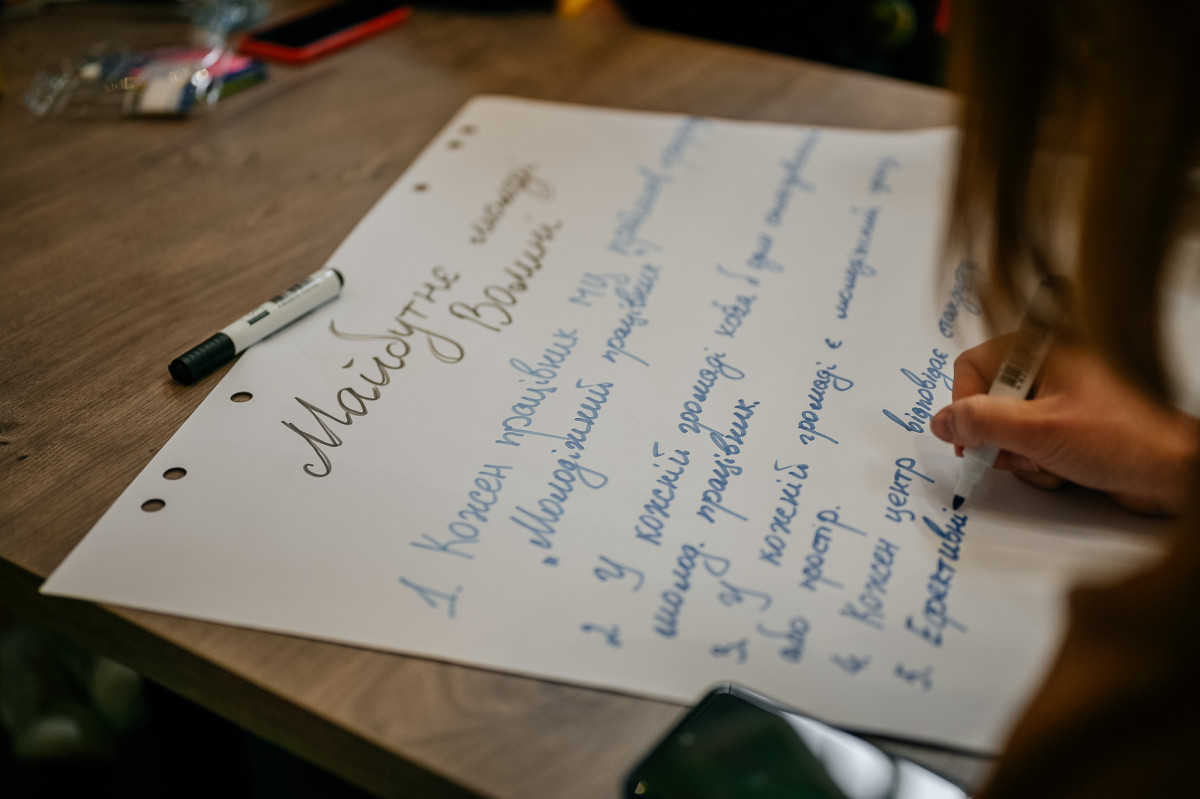 Майбутнє молоді
Волині
1. Кожен працівник МЦ пройшов
"Молодіжний працівник"
2. У кожній громаді хоча б один
молод. працівник.
3. У кожній громаді є молодіжний
або простір.
4. Кожен центр відповідає
5. Ефективні